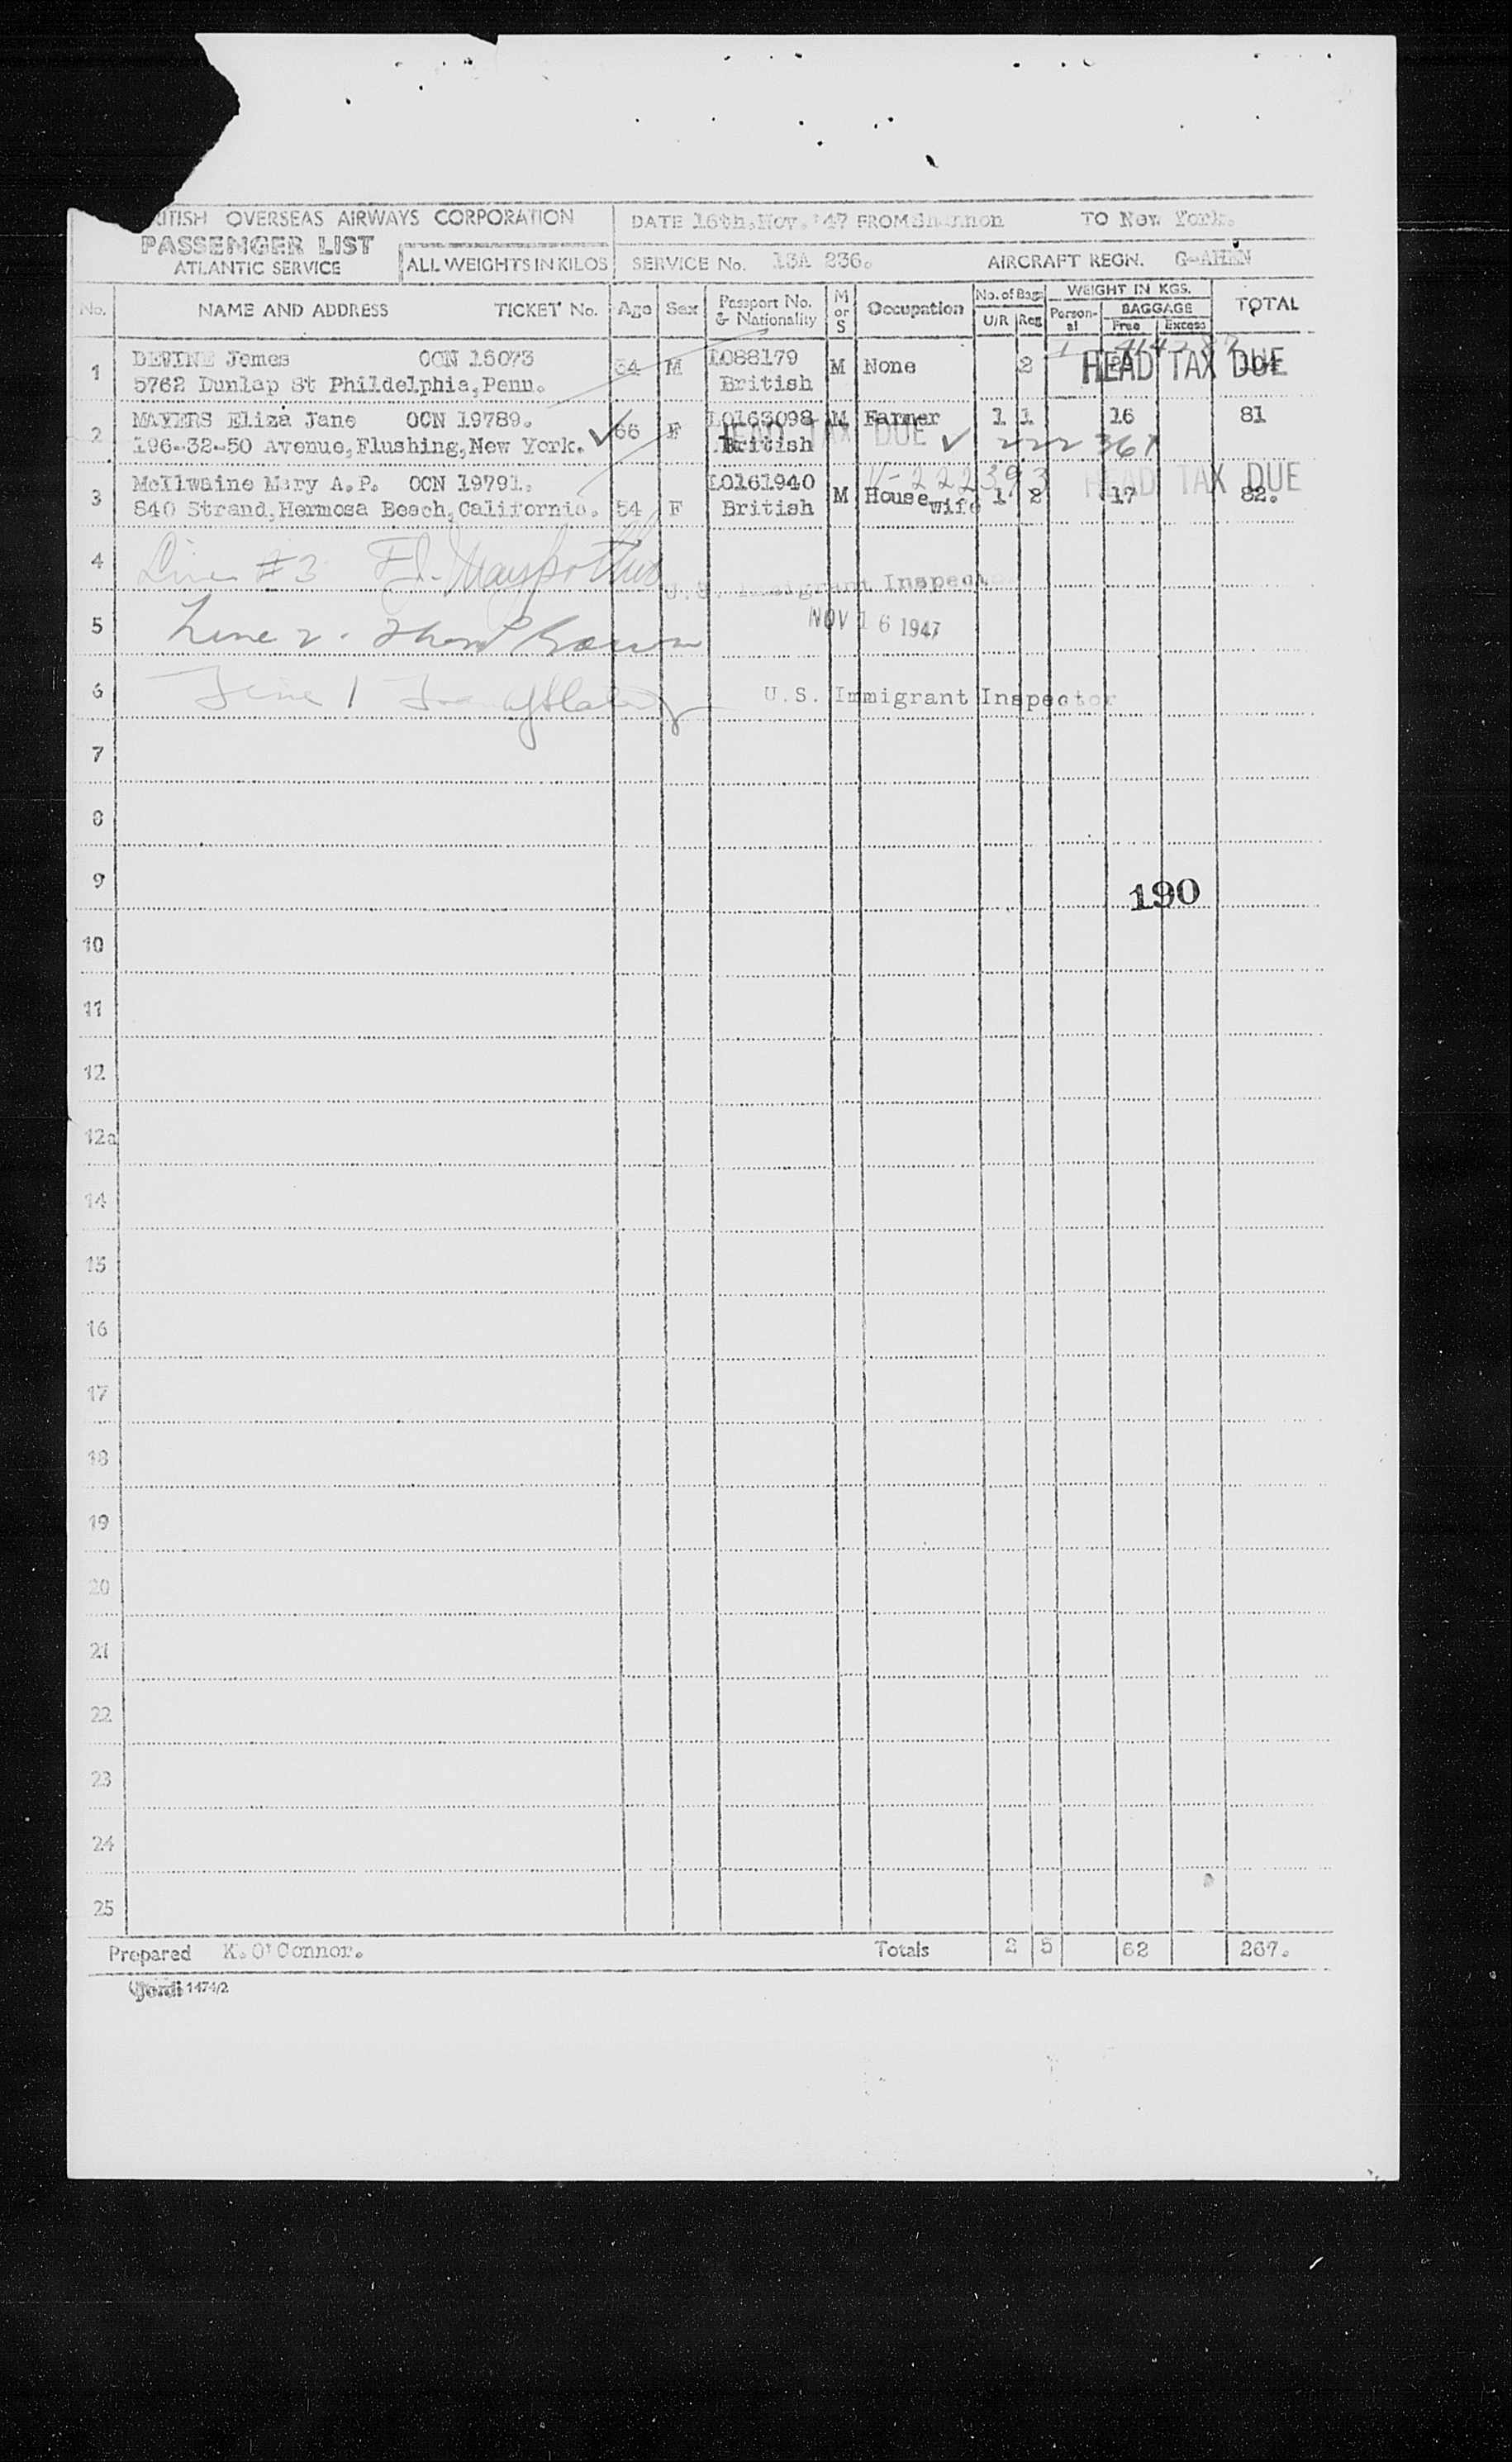 RITISH OVERSEAS AIRWAYS CORPORATION
PASSENGER LIST
ATLANTIC SERVICE
ALL WEIGHTS IN KILOS
DATE 16th.Nov.'47 FROM Shannon TO New York.
SERVICE No. 13A 236. AIRCRAFT REGN. G-AHEN
No. NAME AND ADDRESS TICKET No. Age Sex Passport No. & Nationality M or S Occupation No. of Bags U/R Reg WEIGHT IN KGS. Personal BAGGAGE Free Excess TOTAL
1 DEVINE James OCN 15073 34 M L088179 M None 2
5762 Dunlap St Phildelphia,Penn. British
HEAD TAX DUE
2 MAYERS Eliza Jane OCN 19789. 66 F L0163098 M Farmer 1 1 16 81
196-32-50 Avenue,Flushing,New York. British
HEAD TAX DUE
3 McIlwaine Mary A.P. OCN 19791. 54 F L0161940 M Housewife 1 2 17 82.
840 Strand,Hermosa Beach,California. British
V-222393
HEAD TAX DUE
4 Line #3
U.S. Immigrant Inspector
5 Line 2.
NOV 16 1947
6 Line 1
U.S. Immigrant Inspector
7
8
9
190
10
11
12
12a
14
15
16
17
18
19
20
21
22
23
24
25
Prepared K.O'Connor. Totals 2 5 62 267.
1474/2